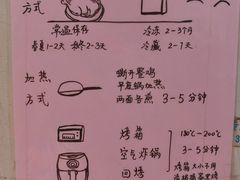 方式
常温保存 冷冻 2-3个月
春夏1-2天 秋冬2-3天 冷藏 2-7天
加热 撕开整鸡
平底锅加热
方式 两面各煎 3-5分钟
烤箱 180℃-200℃
空气炸锅 3-5分钟
回烤 烤箱大小不同